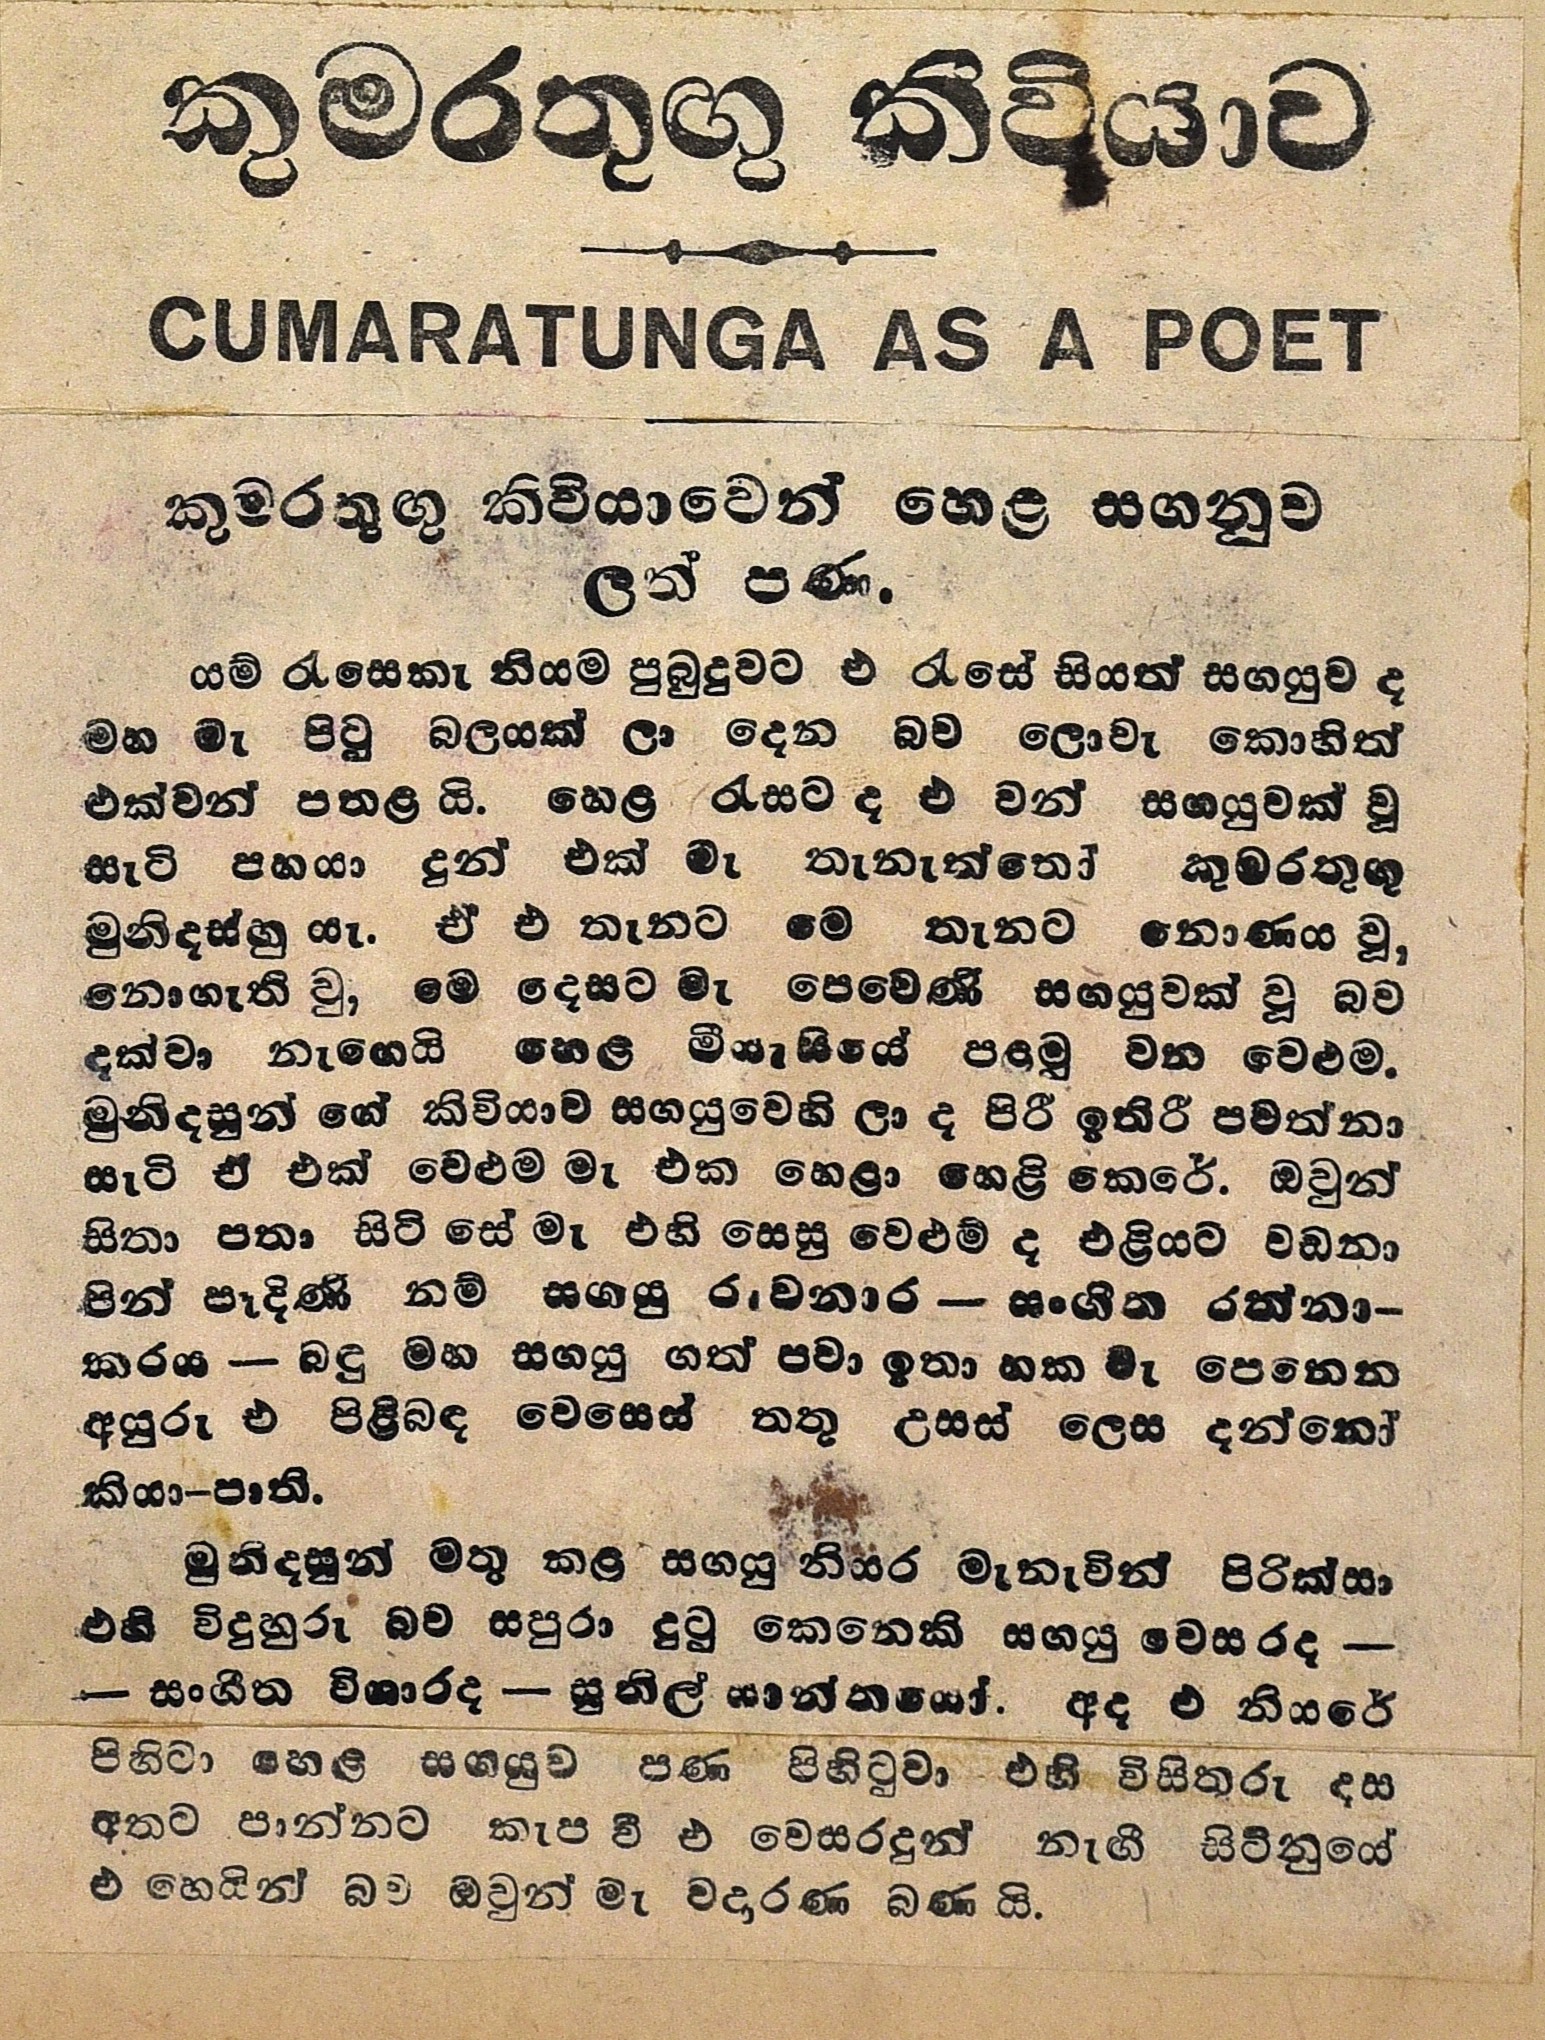 කුමරතුඟු කිවියාව
CUMARATUNGA AS A POET
කුමරතුඟු කිවියාවෙන් හෙළ සගනුව
ලත් පණ.
යම් රැසෙකැ නියම පුබුදුවට එ රැසේ සියත් සගයුව ද
මහ මැ පිටු බලයක් ලා දෙන බව ලොවැ කොහිත්
එක්වන් පතළ යි. හෙළ රැසට ද එ වන් සගයුවක් වූ
සැටි පහයා දුන් එක් මැ තැනැත්තෝ කුමරතුඟු
මුනිදස්හු යැ. ඒ එ තැනට මෙ තැනට නොණය වූ,
නොගැති වු, මෙ දෙසට මැ පෙවෙණි සගයුවක් වූ බව
දක්වා නැගෙයි හෙළ මියැසියේ පළමු වන වෙළුම.
මුනිදසුන් ගේ කිවියාව සගයුවෙහි ලා ද පිරී ඉතිරී පවත්නා
සැටි ඒ එක් වෙළුම මැ එක හෙළා හෙළි කෙරේ. ඔවුන්
සිතා පතා සිටි සේ මැ එහි සෙසු වෙළුම් ද එළියට වඩනා
පින් පෑදිණි නම් සගයු රුවනාර — සංගීත රත්නා-
කරය — බඳු මහ සගයු ගත් පවා ඉතා හක මැ පෙනෙන
අයුරු එ පිළිබඳ වෙසෙස් තතු උසස් ලෙස දන්නෝ
කියා-පාති.
මුනිදසුන් මතු කළ සගයු නියර මැනැවින් පිරික්සා
එහි විදුහුරු බව සපුරා දුටු කෙනෙකි සගයු වෙසරද —
— සංගීත විශාරද — සුනිල් ශාන්තයෝ. අද එ නියරේ
පිහිටා හෙළ සගයුව පණ පිහිටුවා එහි විසිතුරු දස
අතට පාන්නට කැප වී එ වෙසරදුන් නැඟී සිටිනුයේ
එ හෙයින් බව ඔවුන් මැ වදාරණ බණ යි.